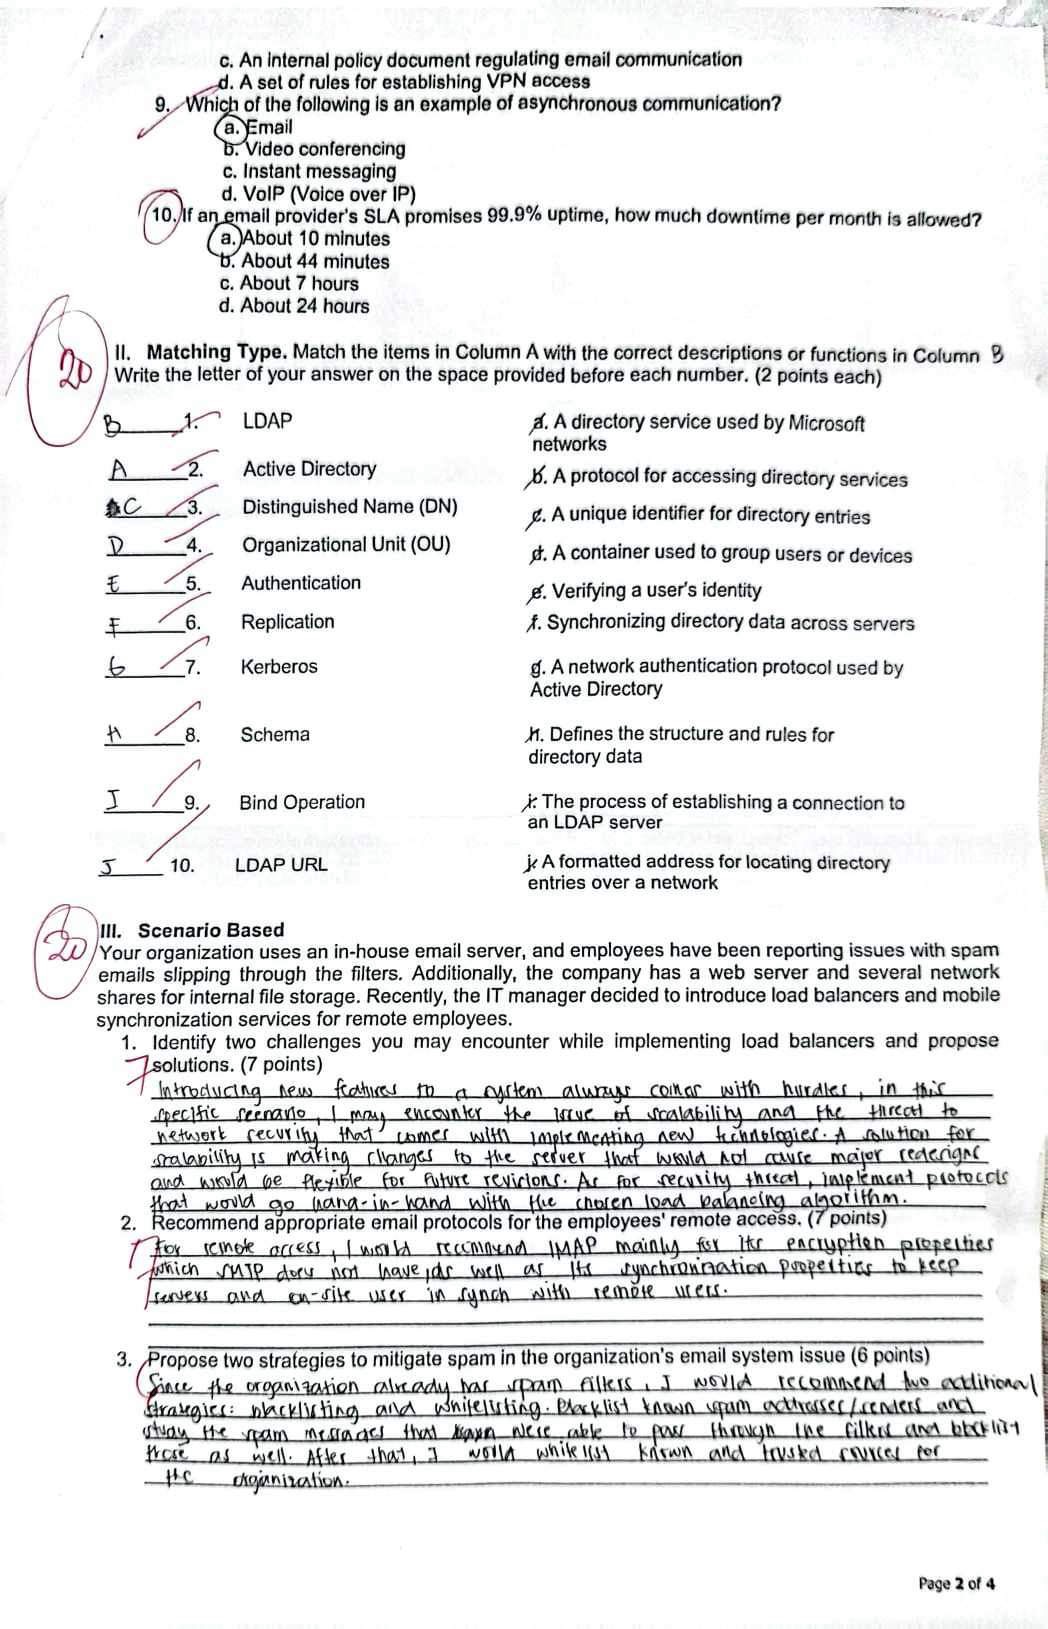 c. An internal policy document regulating email communication
d. A set of rules for establishing VPN access
9. Which of the following is an example of asynchronous communication?
a. Email
b. Video conferencing
c. Instant messaging
d. VoIP (Voice over IP)
10. If an email provider's SLA promises 99.9% uptime, how much downtime per month is allowed?
a. About 10 minutes
b. About 44 minutes
c. About 7 hours
d. About 24 hours
20
II. Matching Type. Match the items in Column A with the correct descriptions or functions in Column B
Write the letter of your answer on the space provided before each number. (2 points each)
B 1. LDAP a. A directory service used by Microsoft
networks
A 2. Active Directory b. A protocol for accessing directory services
C 3. Distinguished Name (DN) c. A unique identifier for directory entries
D 4. Organizational Unit (OU) d. A container used to group users or devices
E 5. Authentication e. Verifying a user's identity
F 6. Replication f. Synchronizing directory data across servers
G 7. Kerberos g. A network authentication protocol used by
Active Directory
H 8. Schema h. Defines the structure and rules for
directory data
I 9. Bind Operation i. The process of establishing a connection to
an LDAP server
J 10. LDAP URL j. A formatted address for locating directory
entries over a network
20
III. Scenario Based
Your organization uses an in-house email server, and employees have been reporting issues with spam
emails slipping through the filters. Additionally, the company has a web server and several network
shares for internal file storage. Recently, the IT manager decided to introduce load balancers and mobile
synchronization services for remote employees.
1. Identify two challenges you may encounter while implementing load balancers and propose
7 solutions. (7 points)
Introducing new features to a system always comes with hurdles, in this
specific scenario, I may encounter the issue of scalability and the threat to
network security that comes with implementing new technologies. A solution for
scalability is making changes to the server that would not cause major redesigns
and would be flexible for future revisions. As for security threat, implement protocols
that would go hang-in-hand with the chosen load balancing algorithm.
2. Recommend appropriate email protocols for the employees' remote access. (7 points)
7 For remote access, I would recommend IMAP mainly for its encryption properties
which SMTP does not have, as well as its synchronization properties to keep
servers and on-site user in synch with remote users.
3. Propose two strategies to mitigate spam in the organization's email system issue (6 points)
Since the organization already has spam filters, I would recommend two additional
strategies: blacklisting and whitelisting. Blacklist known spam addresses/senders and
study the spam messages that were able to pass through the filters and blacklist
those as well. After that, I would whitelist known and trusted sources for
the organization.
Page 2 of 4